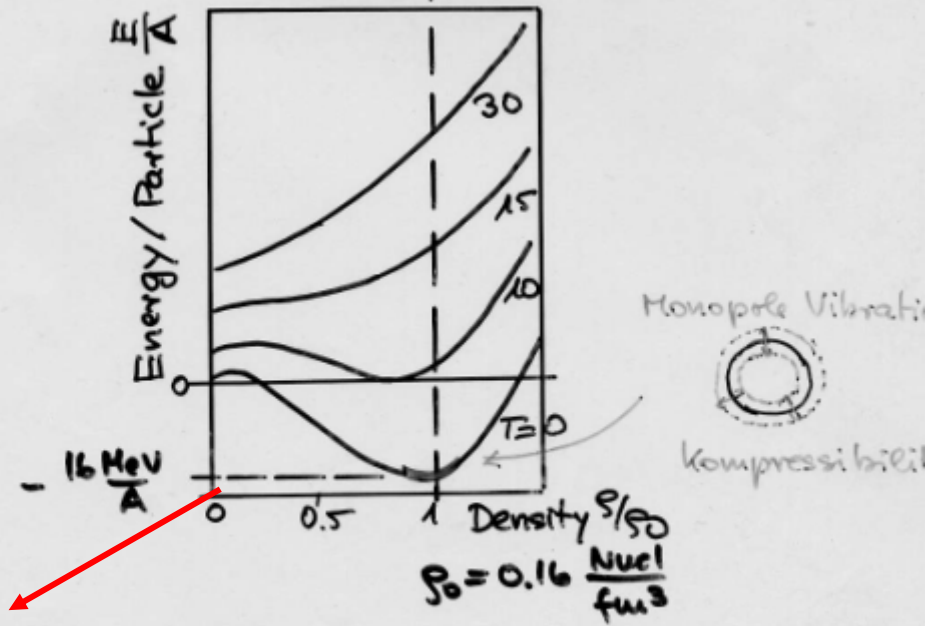 Energy/Particle E/A
30
15
10
T=0
0
- 16 MeV/A
0 0.5 1 Density ρ/ρ0
ρ0 = 0.16 Nucl/fm³
Monopole Vibratio
Kompressibili